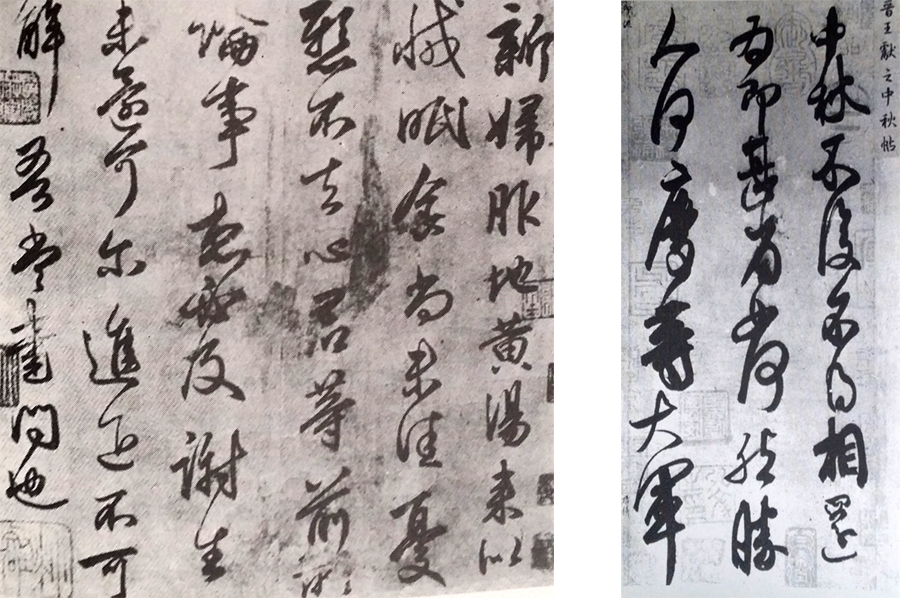 新婦服地黄湯來似
減眠食尚未佳憂
懸不去心君等前所
論事想必及謝生
未還可爾進退不可
解吾當書問也
晉王獻之中秋帖
中秋不復不得相還
為即甚省如何然勝
人何慶等大軍